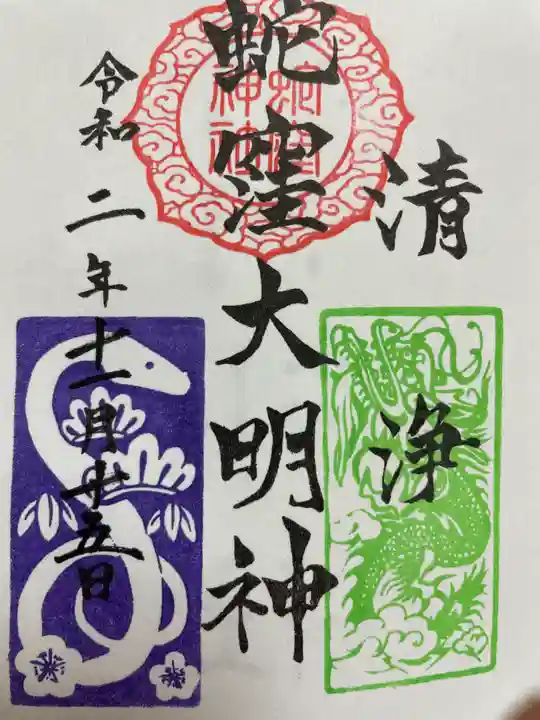 清浄
蛇窪大明神
令和二年十一月廿五日
蛇窪
神社